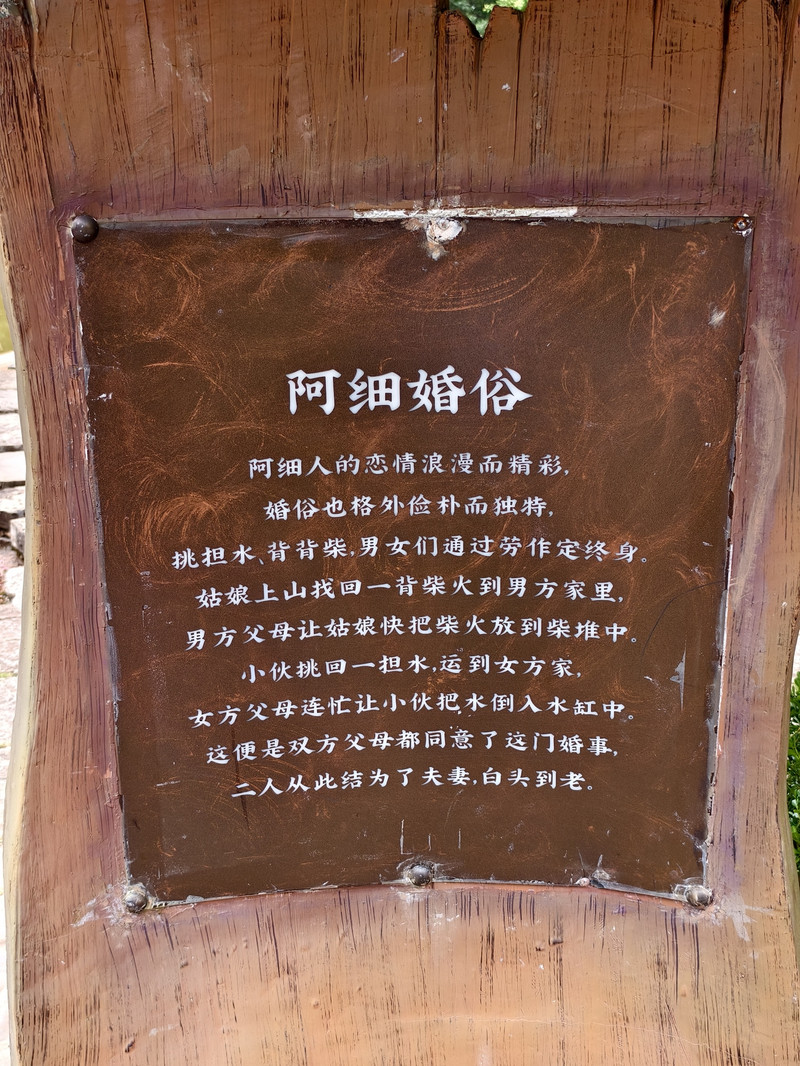 阿细婚俗
阿细人的恋情浪漫而精彩,
婚俗也格外俭朴而独特,
挑担水、背背柴,男女们通过劳作定终身。
姑娘上山找回一背柴火到男方家里,
男方父母让姑娘快把柴火放到柴堆中。
小伙挑回一担水,运到女方家,
女方父母连忙让小伙把水倒入水缸中。
这便是双方父母都同意了这门婚事,
二人从此结为了夫妻,白头到老。